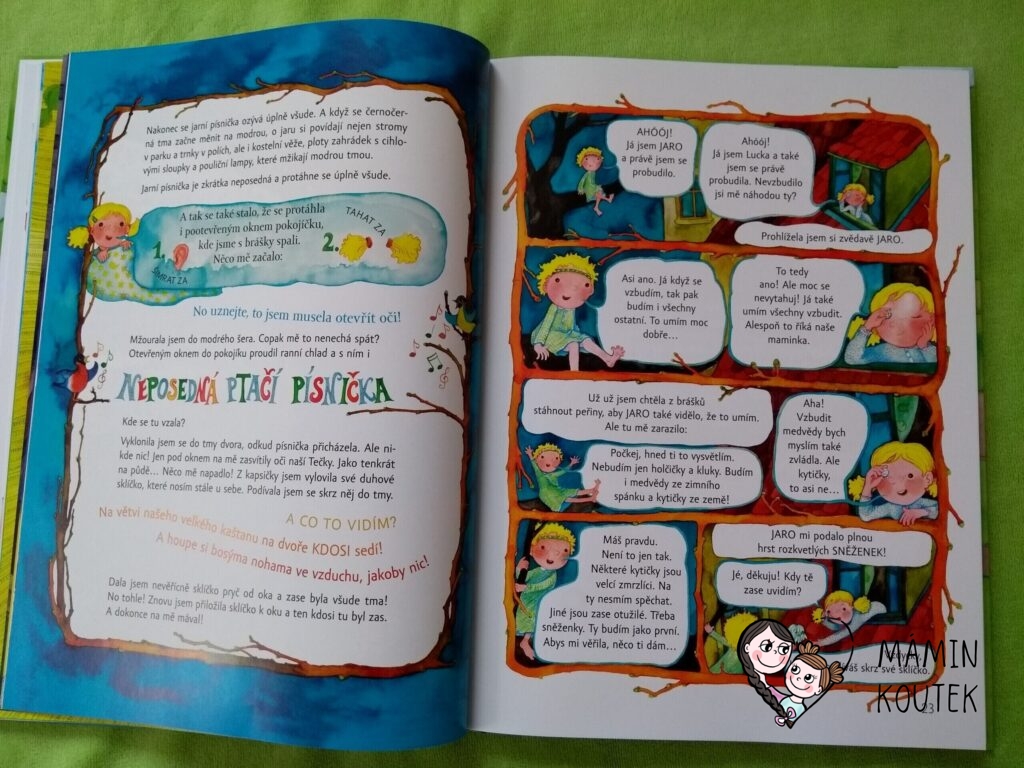 Nakonec se jarní písnička ozývá úplně všude. A když se černočer-
ná tma začne měnit na modrou, o jaru si povídají nejen stromy
v parku a trnky v polích, ale i kostelní věže, ploty zahrádek s cihlo-
vými sloupky a pouliční lampy, které mžikají modrou tmou.
Jarní písnička je zkrátka neposedná a protáhne se úplně všude.
A tak se také stalo, že se protáhla
i pootevřeným oknem pokojíčku,
kde jsme s brášky spali.
Něco mě začalo:
1.
ŠIMRAT ZA
2.
TAHAT ZA
No uznejte, to jsem musela otevřít oči!
Mžourala jsem do modrého šera. Copak mě to nenechá spát?
Otevřeným oknem do pokojíku proudil ranní chlad a s ním i
NEPOSEDNÁ PTAČÍ PÍSNIČKA
Kde se tu vzala?
Vyklonila jsem se do tmy dvora, odkud písnička přicházela. Ale ni-
kde nic! Jen pod oknem na mě zasvítily oči naší Tečky. Jako tenkrát
na půdě... Něco mě napadlo! Z kapsičky jsem vylovila své duhové
sklíčko, které nosím stále u sebe. Podívala jsem se skrz něj do tmy.
A CO TO VIDÍM?
Na větvi našeho velkého kaštanu na dvoře KDOSI sedí!
A houpe si bosýma nohama ve vzduchu, jakoby nic!
Dala jsem nevěřícně sklíčko pryč od oka a zase byla všude tma!
No tohle! Znovu jsem přiložila sklíčko k oku a ten kdosi tu byl zas.
A dokonce na mě mával!
AHÓÓJ!
Já jsem JARO
a právě jsem se
probudilo.
Ahóój!
Já jsem Lucka a také
jsem se právě
probudila. Nevzbudilo
jsi mě náhodou ty?
Prohlížela jsem si zvědavě JARO.
Asi ano. Já když se
vzbudím, tak pak
budím i všechny
ostatní. To umím moc
dobře...
To tedy
ano! Ale moc se
nevytahuj! Já také
umím všechny vzbudit.
Alespoň to říká naše
maminka.
Už už jsem chtěla z brášků
stáhnout peřiny, aby JARO také vidělo, že to umím.
Ale tu mě zarazilo:
Počkej, hned ti to vysvětlím.
Nebudím jen holčičky a kluky. Budím
i medvědy ze zimního
spánku a kytičky ze země!
Aha!
Vzbudit
medvědy bych
myslím také
zvládla. Ale
kytičky,
to asi ne...
Máš pravdu.
Není to jen tak.
Některé kytičky jsou
velcí zmrzlíci. Na
ty nesmím spěchat.
Jiné jsou zase otužilé. Třeba
sněženky. Ty budím jako první.
Abys mi věřila, něco ti dám...
JARO mi podalo plnou
hrst rozkvetlých SNĚŽENEK!
Jé, děkuju! Kdy tě
zase uvidím?
skrz své sklíčko.
23
MÁMIN
KOUTEK